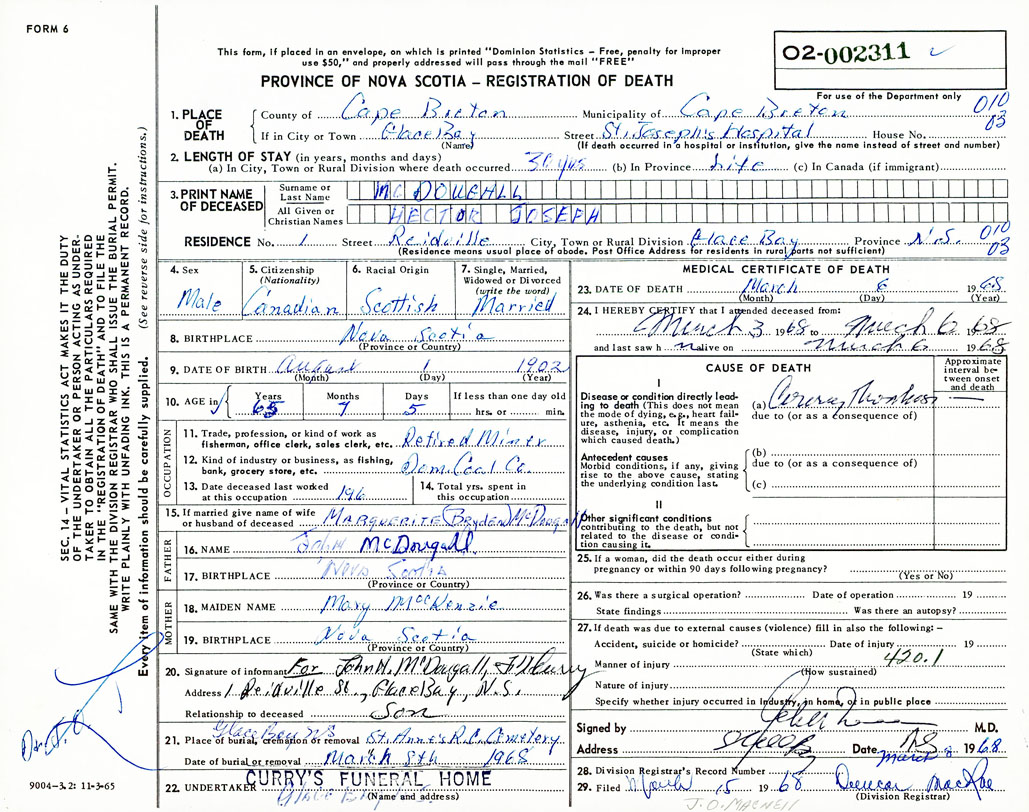 FORM 6
02-002311
This form, if placed in an envelope, on which is printed "Dominion Statistics – Free, penalty for improper
use $50," and properly addressed will pass through the mail "FREE"
PROVINCE OF NOVA SCOTIA – REGISTRATION OF DEATH
For use of the Department only
010
03
1. PLACE OF DEATH
County of Cape Breton Municipality of Cape Breton
If in City or Town Glace Bay Street St. Joseph's Hospital House No.
(Name) (If death occurred in a hospital or institution, give the name instead of street and number)
2. LENGTH OF STAY (in years, months and days)
(a) In City, Town or Rural Division where death occurred 30 yrs (b) In Province Life (c) In Canada (if immigrant)
3. PRINT NAME OF DECEASED
Surname or Last Name McDOUGALL
All Given or Christian Names HECTOR JOSEPH
RESIDENCE No. 1 Street Reidville City, Town or Rural Division Glace Bay Province N.S.
010
03
(Residence means usual place of abode. Post Office Address for residents in rural parts not sufficient)
4. Sex
Male
5. Citizenship
(Nationality)
Canadian
6. Racial Origin
Scottish
7. Single, Married,
Widowed or Divorced
(write the word)
Married
8. BIRTHPLACE Nova Scotia
(Province or Country)
9. DATE OF BIRTH August 1 1902
(Month) (Day) (Year)
10. AGE in
Years Months Days If less than one day old
65 7 5 hrs. or min.
OCCUPATION
11. Trade, profession, or kind of work as
fisherman, office clerk, sales clerk, etc. Retired Miner
12. Kind of industry or business, as fishing,
bank, grocery store, etc. Dom. Coal Co.
13. Date deceased last worked
at this occupation 196
14. Total yrs. spent in
this occupation
15. If married give name of wife
or husband of deceased MARGUERITE (Bryden) McDougall
FATHER
16. NAME John McDougall
17. BIRTHPLACE Nova Scotia
(Province or Country)
MOTHER
18. MAIDEN NAME Mary McKenzie
19. BIRTHPLACE Nova Scotia
(Province or Country)
20. Signature of informant For John H. McDougall,
Address 1 Reidville St., Glace Bay, N.S.
Relationship to deceased Son
Glace Bay NS
21. Place of burial, cremation or removal St. Anne's R.C. Cemetery
Date of burial or removal March 8th 1968
22. UNDERTAKER CURRY'S FUNERAL HOME
GLACE BAY
(Name and address)
MEDICAL CERTIFICATE OF DEATH
23. DATE OF DEATH March 6 1968
(Month) (Day) (Year)
24. I HEREBY CERTIFY that I attended deceased from:
March 3 1968 to March 6 1968
and last saw h m alive on March 6 1968
CAUSE OF DEATH
Approximate
interval be-
tween onset
and death
I
Disease or condition directly lead-
ing to death (This does not
mean the mode of dying, e.g., heart fail-
ure, asthenia, etc. It means the
disease, injury, or complication
which caused death.)
(a) Coronary Thrombosis
due to (or as a consequence of)
Antecedent causes
Morbid conditions, if any, giving
rise to the above cause, stating
the underlying condition last.
(b)
due to (or as a consequence of)
(c)
II
Other significant conditions
contributing to the death, but not
related to the disease or condi-
tion causing it.
25. If a woman, did the death occur either during
pregnancy or within 90 days following pregnancy?
(Yes or No)
26. Was there a surgical operation? Date of operation 19
State findings Was there an autopsy?
27. If death was due to external causes (violence) fill in also the following: –
Accident, suicide or homicide? Date of injury 19
(State which)
420.1
Manner of injury
(How sustained)
Nature of injury
Specify whether injury occurred in Industry, in home, or in public place
Signed by M.D.
Address Date March 8 1968
28. Division Registrar's Record Number
29. Filed March 15 1968 Duncan MacRae
(Division Registrar)
J.O. MACNEIL
SEC. 14 – VITAL STATISTICS ACT MAKES IT THE DUTY
OF THE UNDERTAKER OR PERSON ACTING AS UNDER-
TAKER TO OBTAIN ALL THE PARTICULARS REQUIRED
IN THE "REGISTRATION OF DEATH" AND TO FILE THE
SAME WITH THE DIVISION REGISTRAR WHO SHALL ISSUE THE BURIAL PERMIT.
WRITE PLAINLY WITH UNFADING INK. THIS IS A PERMANENT RECORD.
Every item of information should be carefully supplied. (See reverse side for instructions.)
9004–3.2: 11-3-65